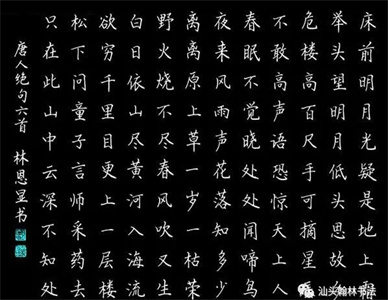 床前明月光疑是地上霜
举头望明月低头思故乡
危楼高百尺手可摘星辰
不敢高声语恐惊天上人
春眠不觉晓处处闻啼鸟
夜来风雨声花落知多少
离离原上草一岁一枯荣
野火烧不尽春风吹又生
白日依山尽黄河入海流
欲穷千里目更上一层楼
松下问童子言师采药去
只在此山中云深不知处
唐人绝句六首 林恩显书
汕头翰林书法